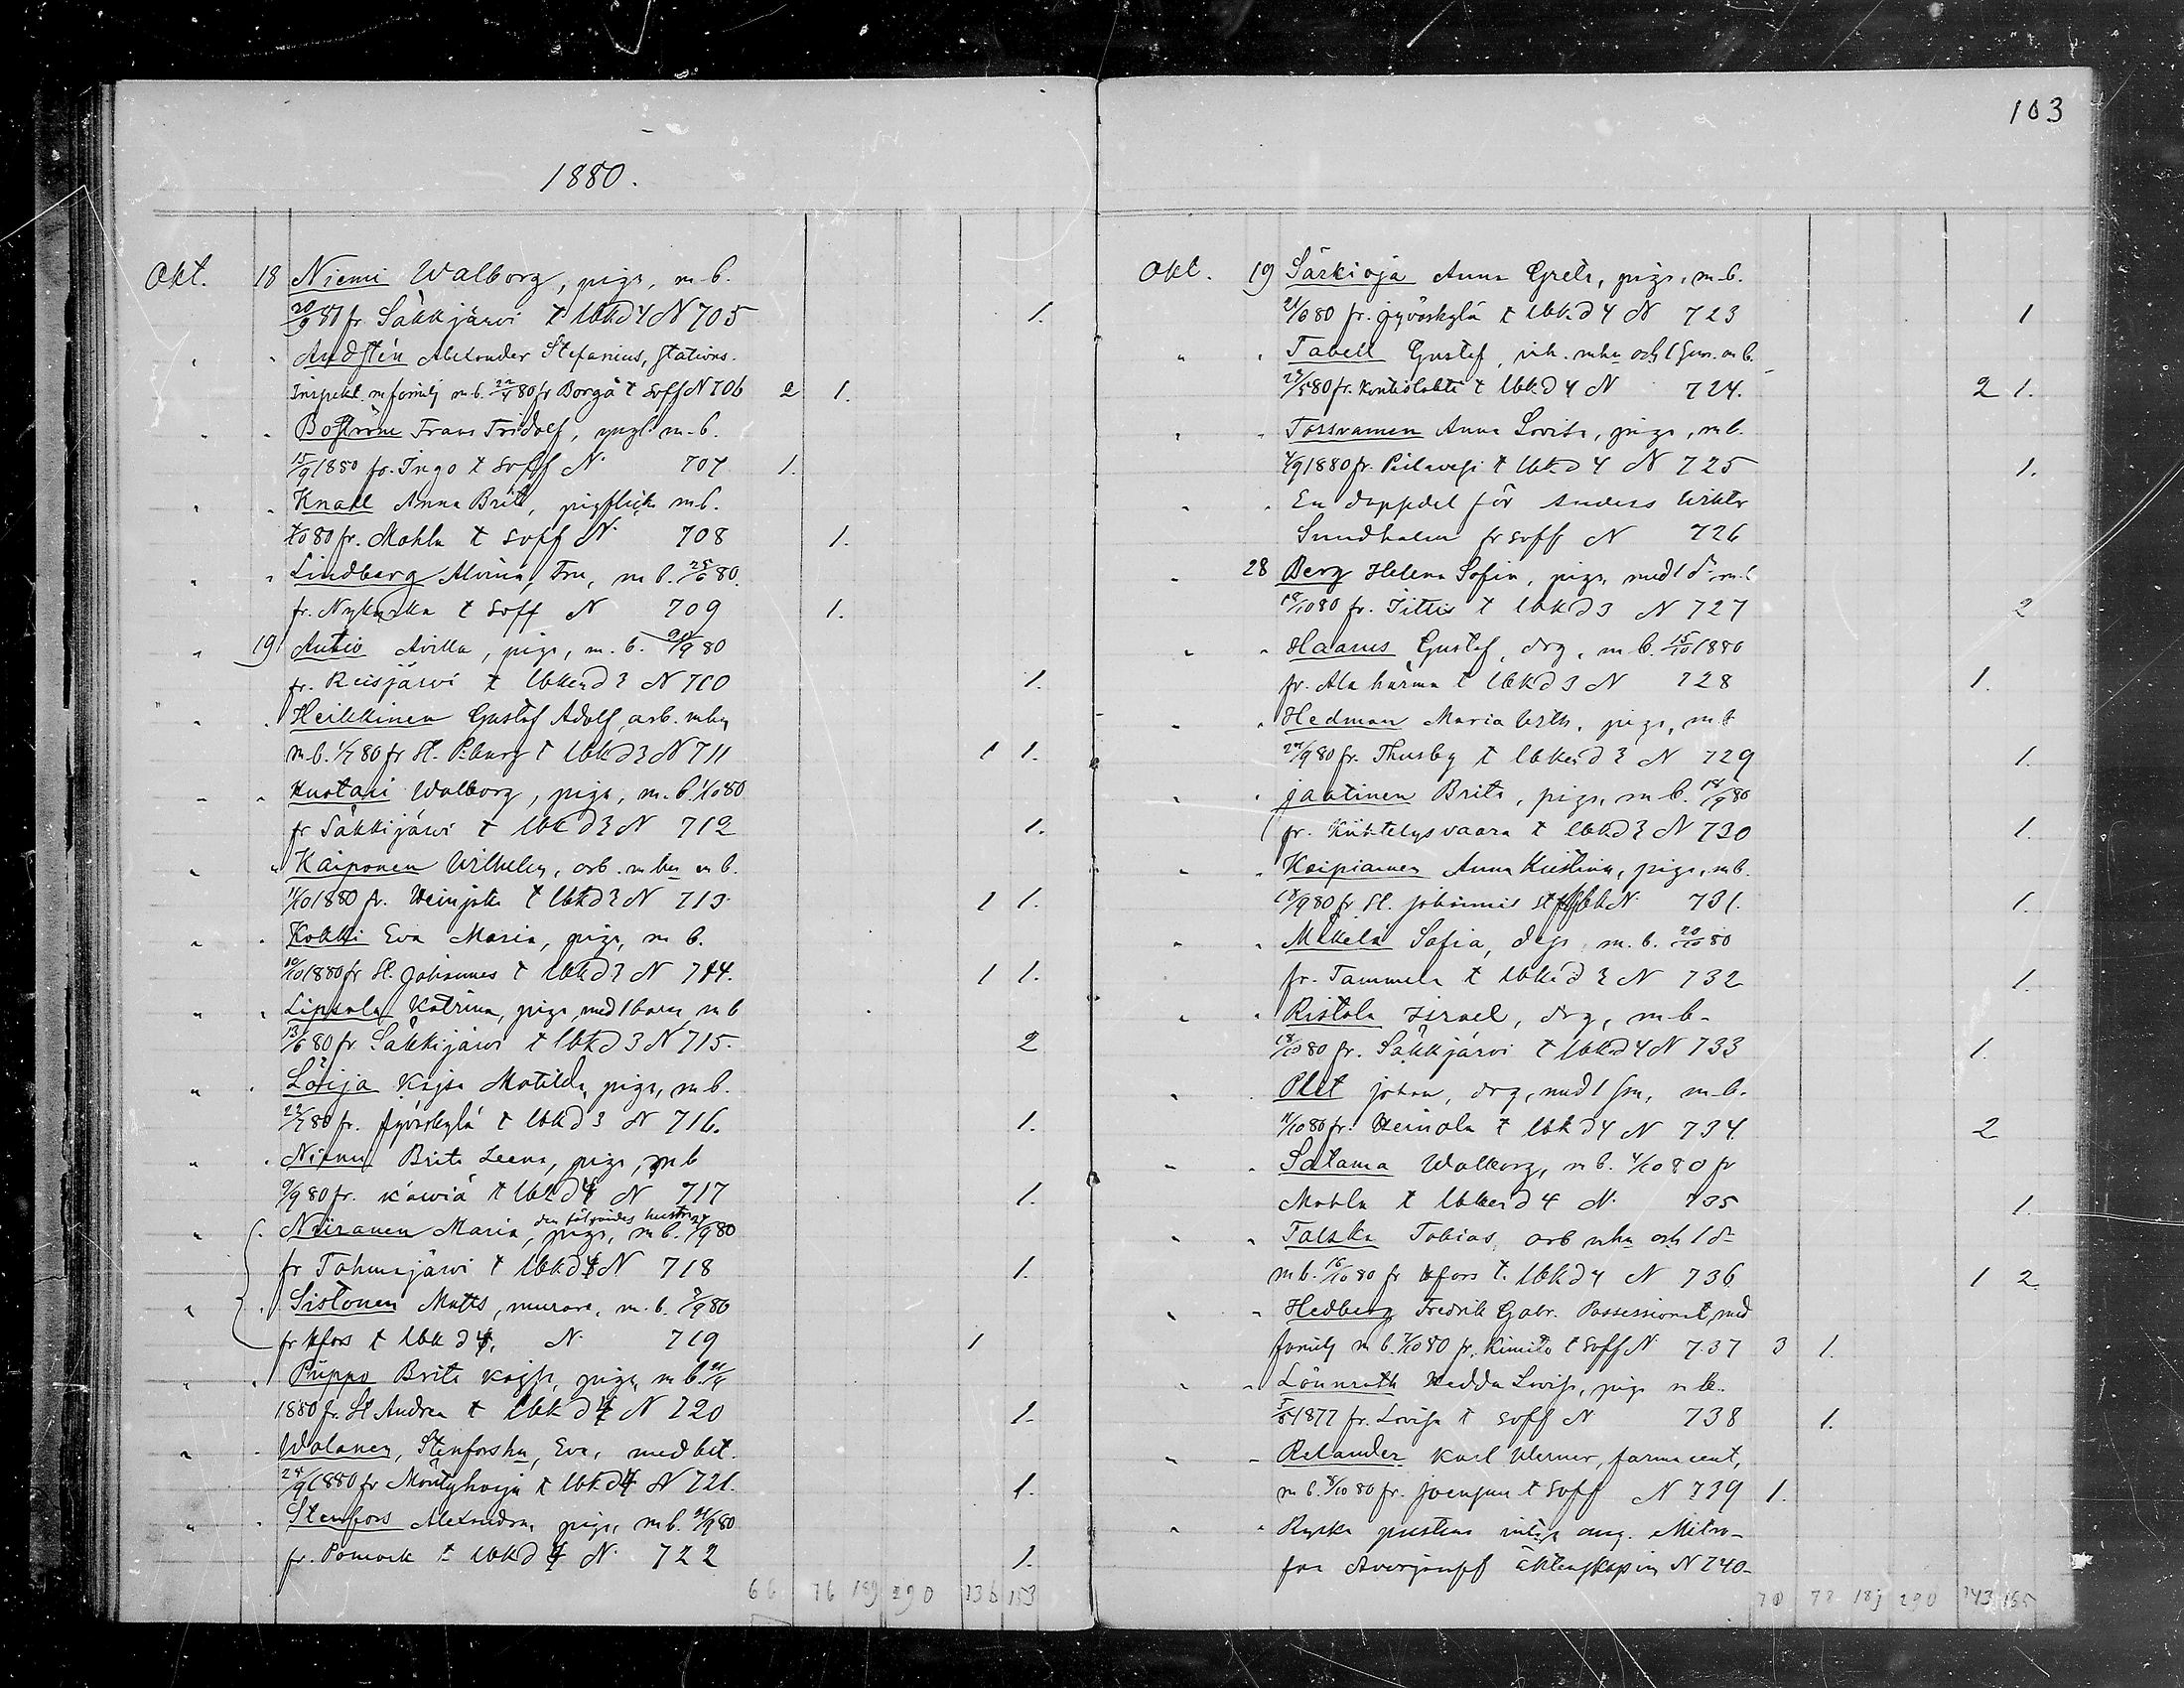 103
1880.
Okt. 18 Niemi Walborg, piga, m. b.
20/9 80 fr. Säkkjärvi t lbkd 4 N 705 1.
" " Andstén Alexander Stefanius, stations-
Inspekt. m familj m. b. 80 fr Borgå t soff N 706 2 1.
" " Boström Frans Fridolf, yngl. m. b.
15/9 1880 fr. Ingo t soff N 707 1.
" " Knall Anna Brita, pigflicka m b.
80 fr. Mohla t soff N 708 1.
" " Lindberg Alvina, Fru, m b. 25/6 80.
fr. Nykarka t soff N 709 1.
" 19 Autio Avilla, piga, m. b. 20/9 80
fr. Reisjärvi t lbken d 3 N 710 1.
" " Heikkinen Gustaf Adolf, arb. mhu
m b. 1/7 80 fr St. P.burg t lbkd 3 N 711 1 1.
" " Kuotari Walborg, piga, m. b. 1/10 80
fr Säkkijärvi t lbkd 3 N 712 1.
" " Kaiponen Wilhelm, arb. m hu m b.
11/10 1880 fr. Weinjoki t lbkd 3 N 713 1 1.
" " Kokki Eva Maria, piga, m b.
10/10 1880 fr St. Johannes t lbkd 3 N 714. 1 1.
" " Lipsala Katrina, piga, med 1 barn, m b
13/6 80 fr Säkkijärvi t lbkd 3 N 715. 2
" " Löija Kajsa Matilda, piga, m b.
22/7 80 fr. Jyväskylä t lbkd 3 N 716. 1.
" " Niemi Brita Leena, piga, m b
9/9 80 fr. Kawiä t lbkd 4 N 717 1.
" " Neiranen Maria, den följandes hustru, piga, m b. 80
fr Tohmajärvi t lbkd 4 N 718 1.
" " Sistonen Matts, murare, m. b. 80
fr Hfors t lbk d 4, N 719 1
" " Puppo Brita Kajsa, piga, m b.
1880 fr. St Andrea t lbk d 4 N 720 1.
" " Wolanen, Stenforshu, Eva, med bet.
24/9 1880 fr Mäntyharju t lbkd 4 N 721. 1.
" " Stenfors Alexandra, piga, m b. 80
fr. Pomark t lbkd 4 N 722 1.
66 76 189 290 136 153
Okt. 19 Särkioja Anna Greta, piga, m b.
21/6 80 fr. Jyväskylä t lbkd 4 N 723 1
" " Tabell Gustaf, m. mhu och 1 son. m b.
80 fr. Kontiolahti t lbkd 4 N 724. 2 1.
" " Torsvamen Anna Lovisa, piga, m b.
4/9 1880 fr. Pielavesi t lbkd 4 N 725 1.
" " En doppdel för Anders Wiktor
Sundholm fr soff N 726
" 28 Berg Helena Sofia, piga, med 1 dr m. b
18/10 80 fr. Iittis t lbkd 3 N 727 2
" " Haanus Gustaf, drg, m b. 15/10 1880
fr. Ala härmä t lbkd 3 N 728 1.
" " Hedman Maria Wilh., piga, m b
27/9 80 fr. Thusby t lbken d 3 N 729 1.
" " Jaatinen Brita, piga, m b. 18/9 80
fr. Kiihtelysvaara t lbkd 3 N 730 1.
" " Koipiainen Anna Kristina, piga, m b.
80 fr. St. Johannis lbk N 731. 1.
" " Mäkelä Sofia, piga m. b. 20/10 80
fr. Tammela t lbkd 3 N 732 1.
" " Ristola Israel, drg, m b.
18/10 80 fr. Säkkjärvi t lbkd 4 N 733 1.
" " Plit Johan, drg, med 1 son, m. b.
11/10 80 fr. Heinola t lbk d 4 N 734 2
" " Satama Walborg, m b. 4/10 80 fr
Mohla t lbken d 4 N 735 1.
" " Talska Tobias, arb mhu och 1 dr
m b. 16/10 80 fr Hfors t. lbkd 4 N 736 1 2
" " Hedberg Fredrik Gabr. Possessionat, med
familj m b. 80 fr. Kimito t soff N 737 3 1.
" " Lönnroth Hedda Lovisa, piga m b.
1877 fr. Lovisa t soff N 738 1.
" " Relander Karl Werner, farmaceut,
m b. 8/10 80 fr. Joensuu t soff N 739 1.
" " Ryska prestens intyg ang. Mitro-
fan äktenskap in N 740
70 78 189 290 143 165